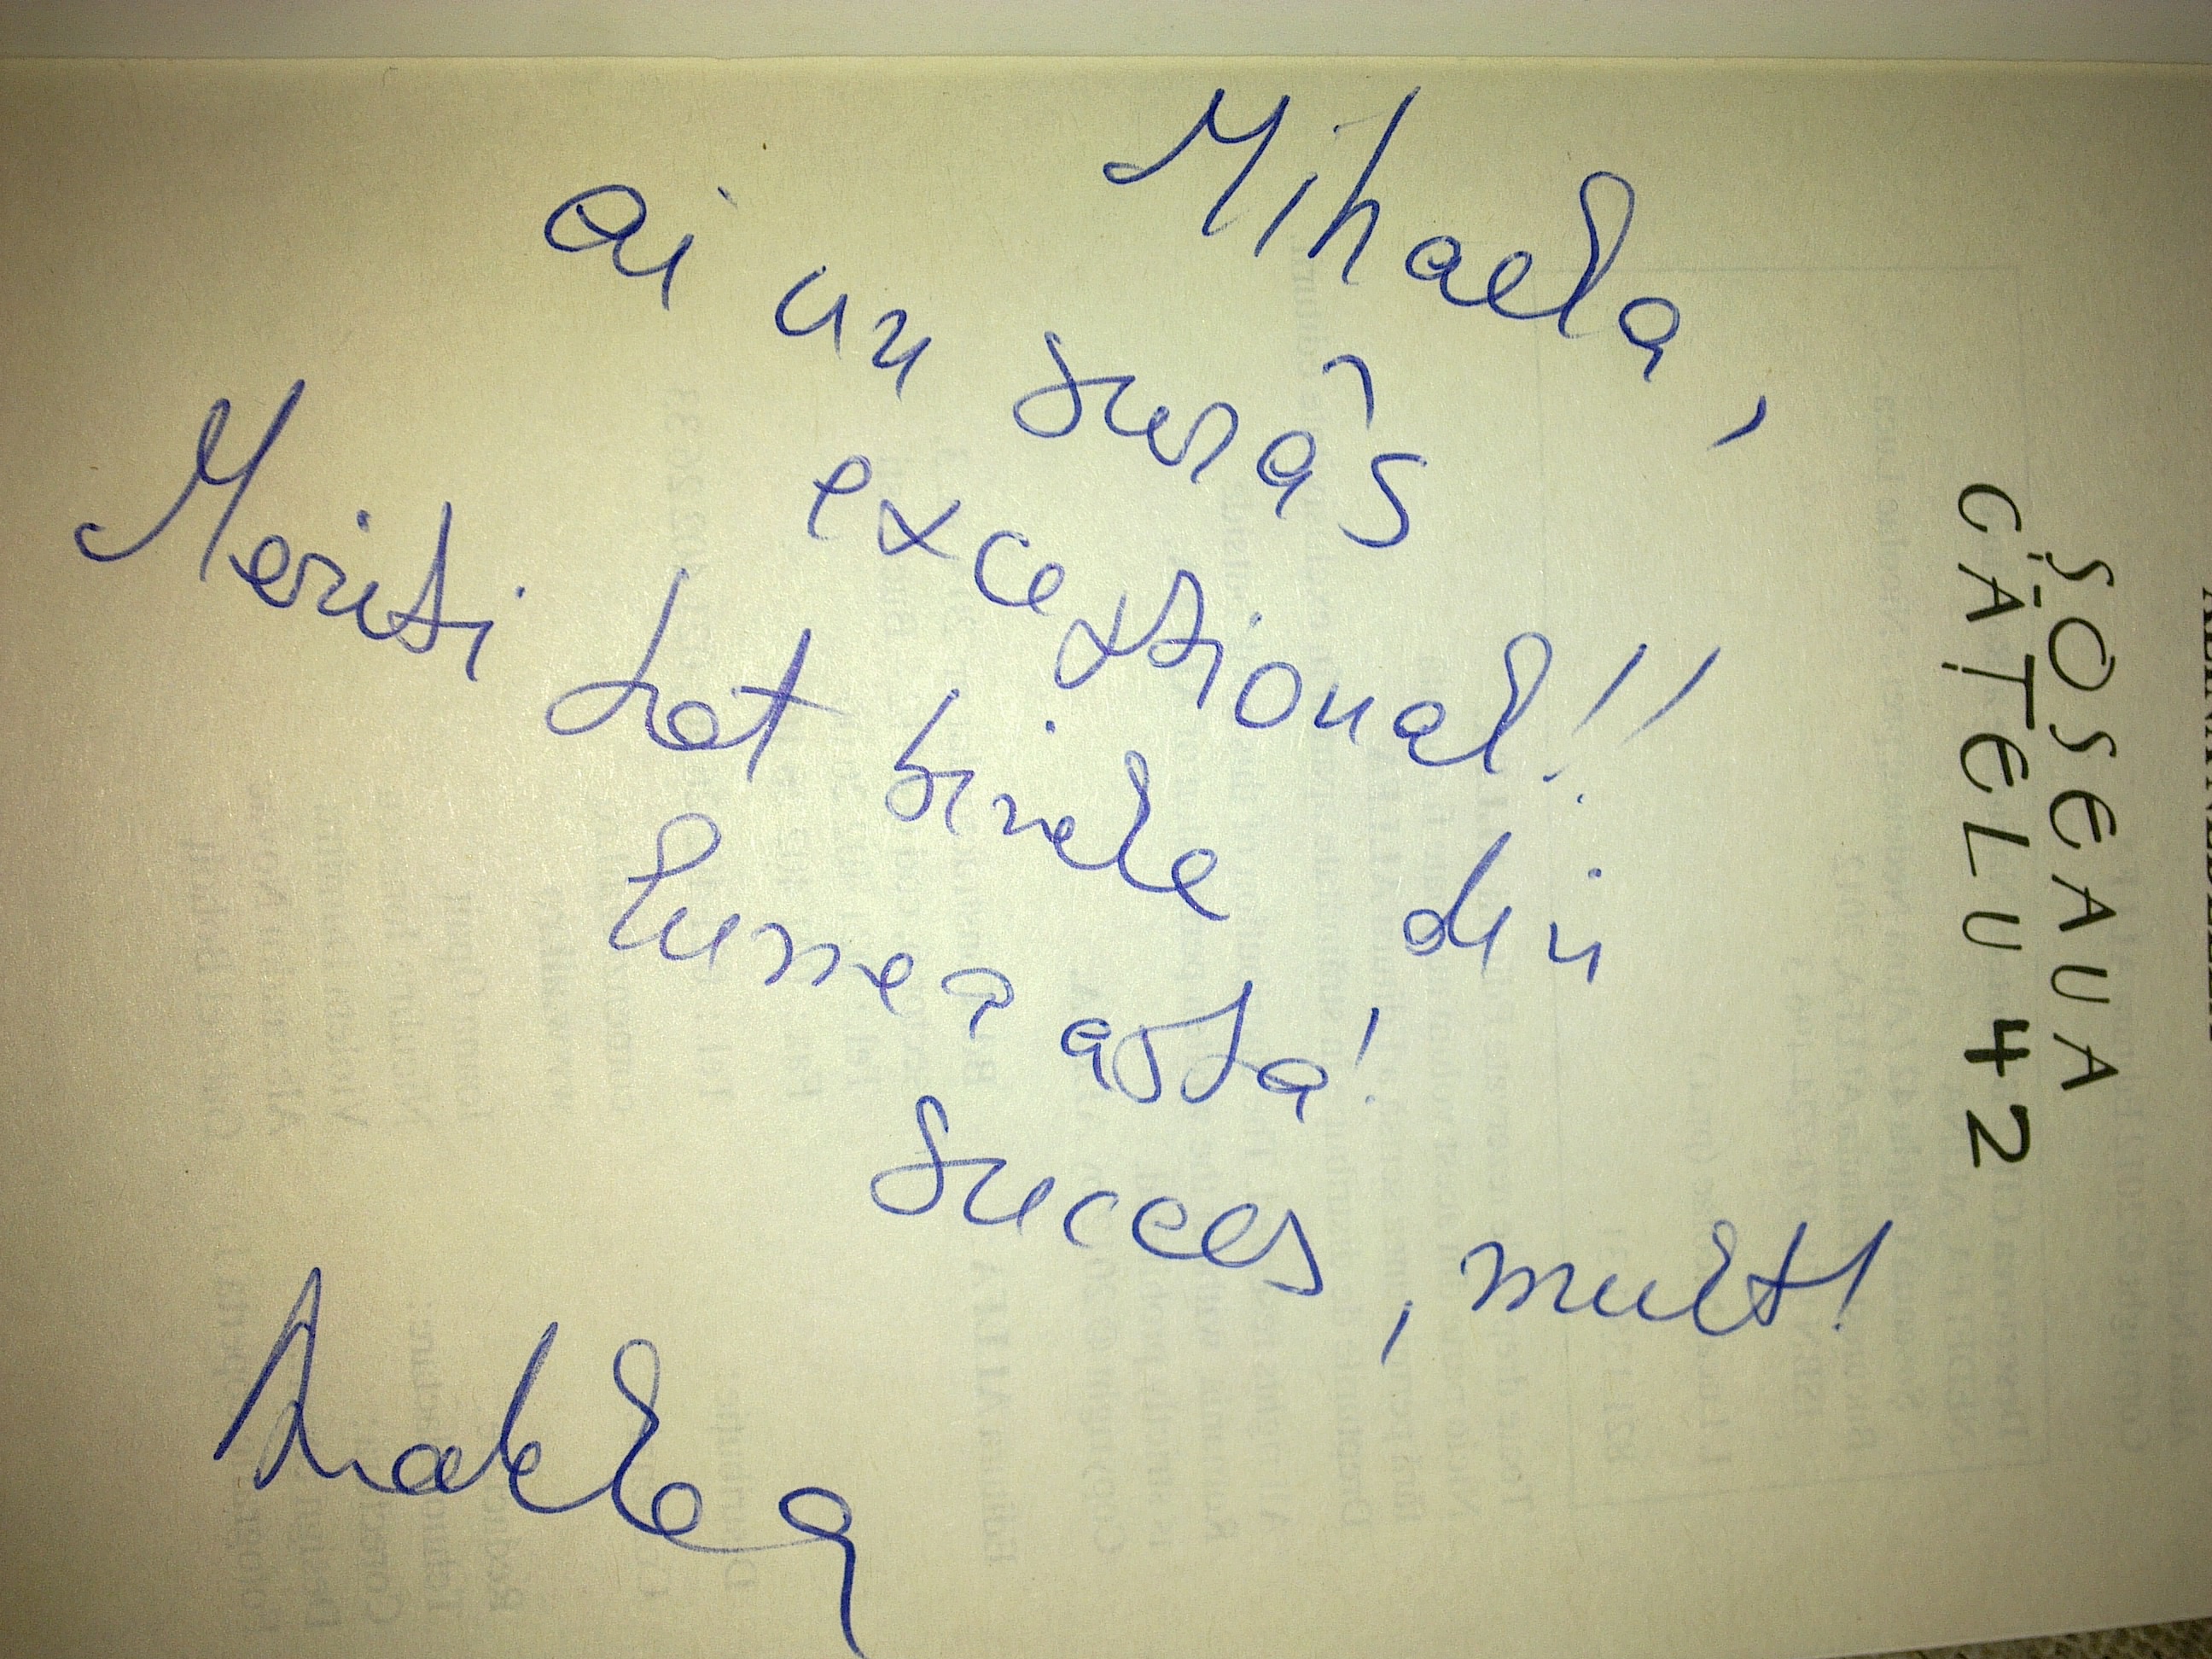 Mihaela,
ai un surâs
excepțional!!
Meriti tot binele din
lumea asta!
Succes, mult!
ȘOSEAUA
CĂȚELU 42